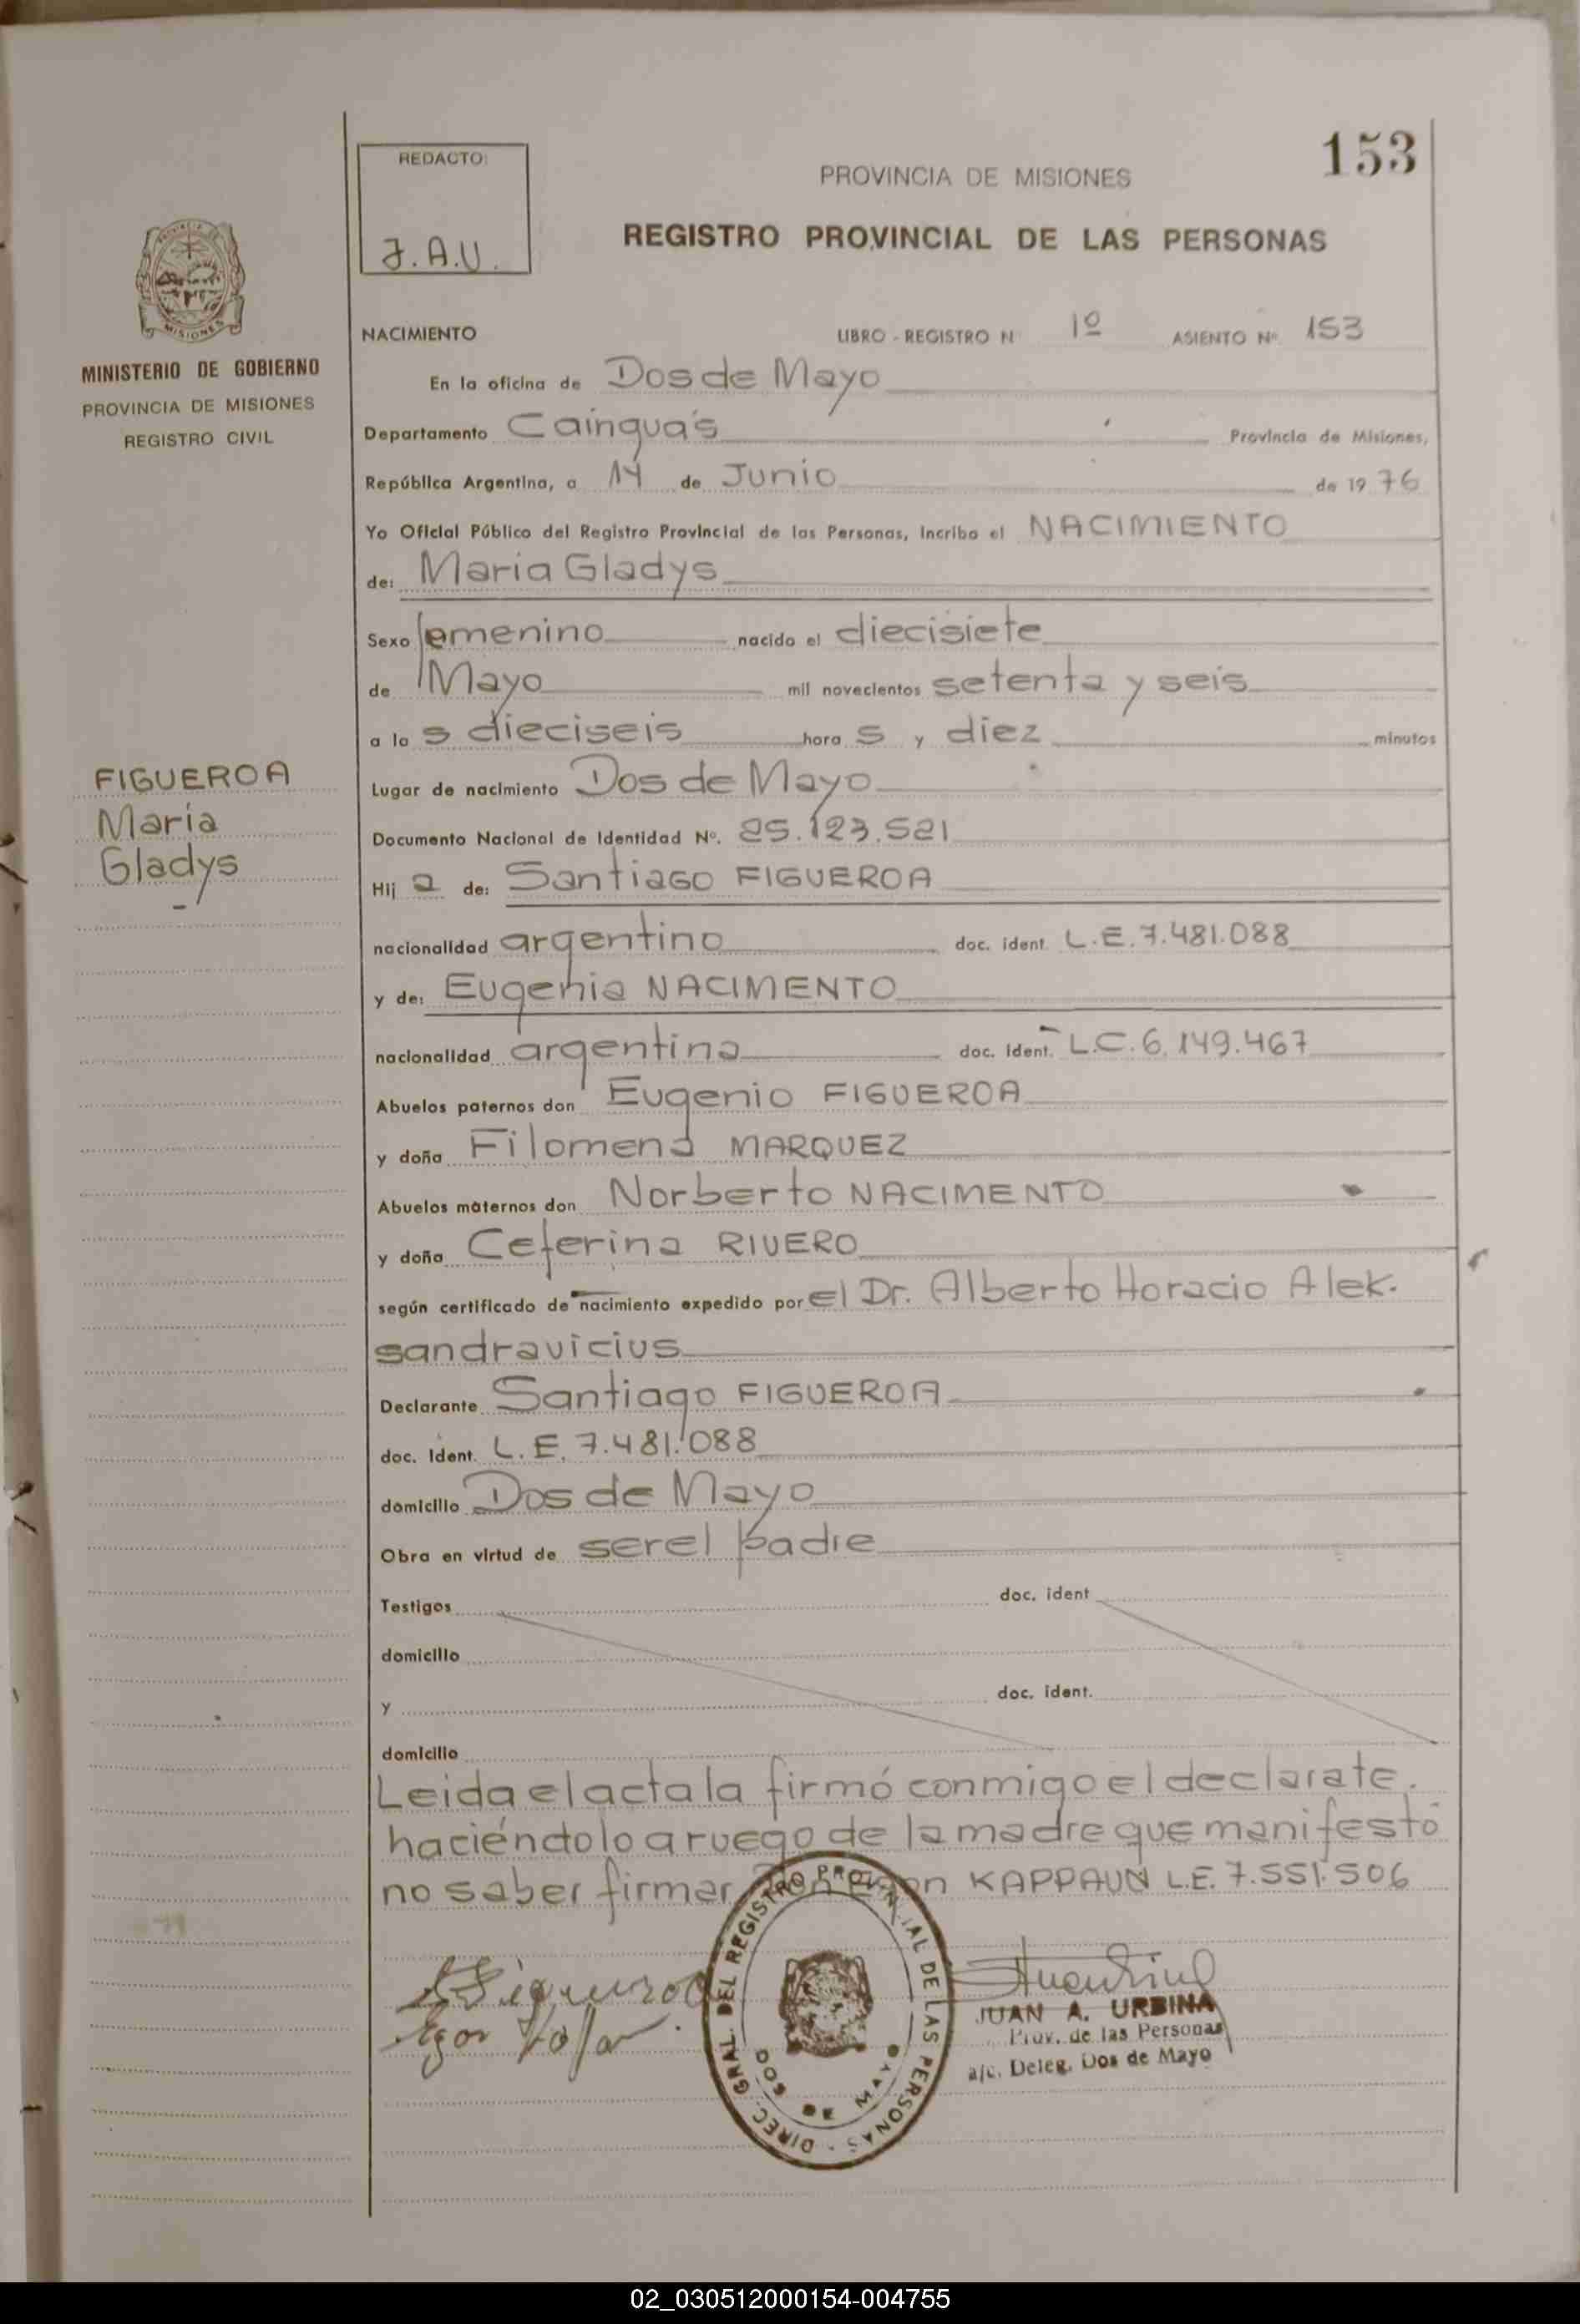 153
REDACTO:
J.A.U.
PROVINCIA DE MISIONES
REGISTRO PROVINCIAL DE LAS PERSONAS
MISIONES
MINISTERIO DE GOBIERNO
PROVINCIA DE MISIONES
REGISTRO CIVIL
NACIMIENTO LIBRO - REGISTRO N 1º ASIENTO Nº 153
En la oficina de Dos de Mayo
Departamento Cainguás Provincia de Misiones,
República Argentina, a 14 de Junio de 1976
Yo Oficial Público del Registro Provincial de las Personas, incribo el NACIMIENTO
de: Maria Gladys
Sexo femenino nacido el diecisiete
de Mayo mil novecientos setenta y seis
a los dieciseis horas y diez minutos
FIGUEROA
María
Gladys
Lugar de nacimiento Dos de Mayo
Documento Nacional de Identidad Nº. 25.123.521
Hija de: Santiago FIGUEROA
nacionalidad argentino doc. ident. L.E.7.481.088
y de: Eugenia NACIMENTO
nacionalidad argentina doc. ident. L.C.6.149.467
Abuelos paternos don Eugenio FIGUEROA
y doña Filomena MARQUEZ
Abuelos maternos don Norberto NACIMENTO
y doña Ceferina RIVERO
según certificado de nacimiento expedido por el Dr. Alberto Horacio Alek.
sandravicius
Declarante Santiago FIGUEROA
doc. ident. L.E.7.481.088
domicilio Dos de Mayo
Obra en virtud de ser el padre
Testigos doc. ident
domicilio
y doc. ident.
domicilio
Leida el acta la firmó conmigo el declarate.
haciéndolo a ruego de la madre que manifestó
no saber firmar KAPPAUN L.E. 7.551.506
Figueroa
JUAN A. URBINA
Prov. de las Personas
a/c. Deleg. Dos de Mayo
DIREC. GRAL. DEL REGISTRO PROVINCIAL DE LAS PERSONAS
DOS DE MAYO
02_030512000154-004755